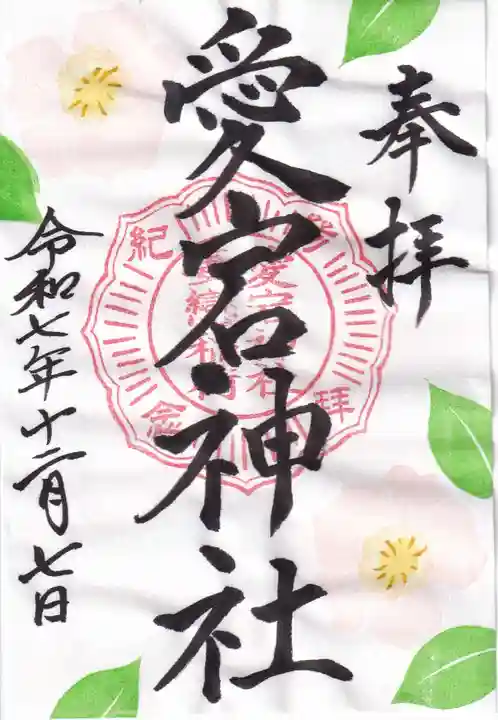 奉拝
愛宕神社
令和七年十二月七日
参拝紀念
愛宕神社